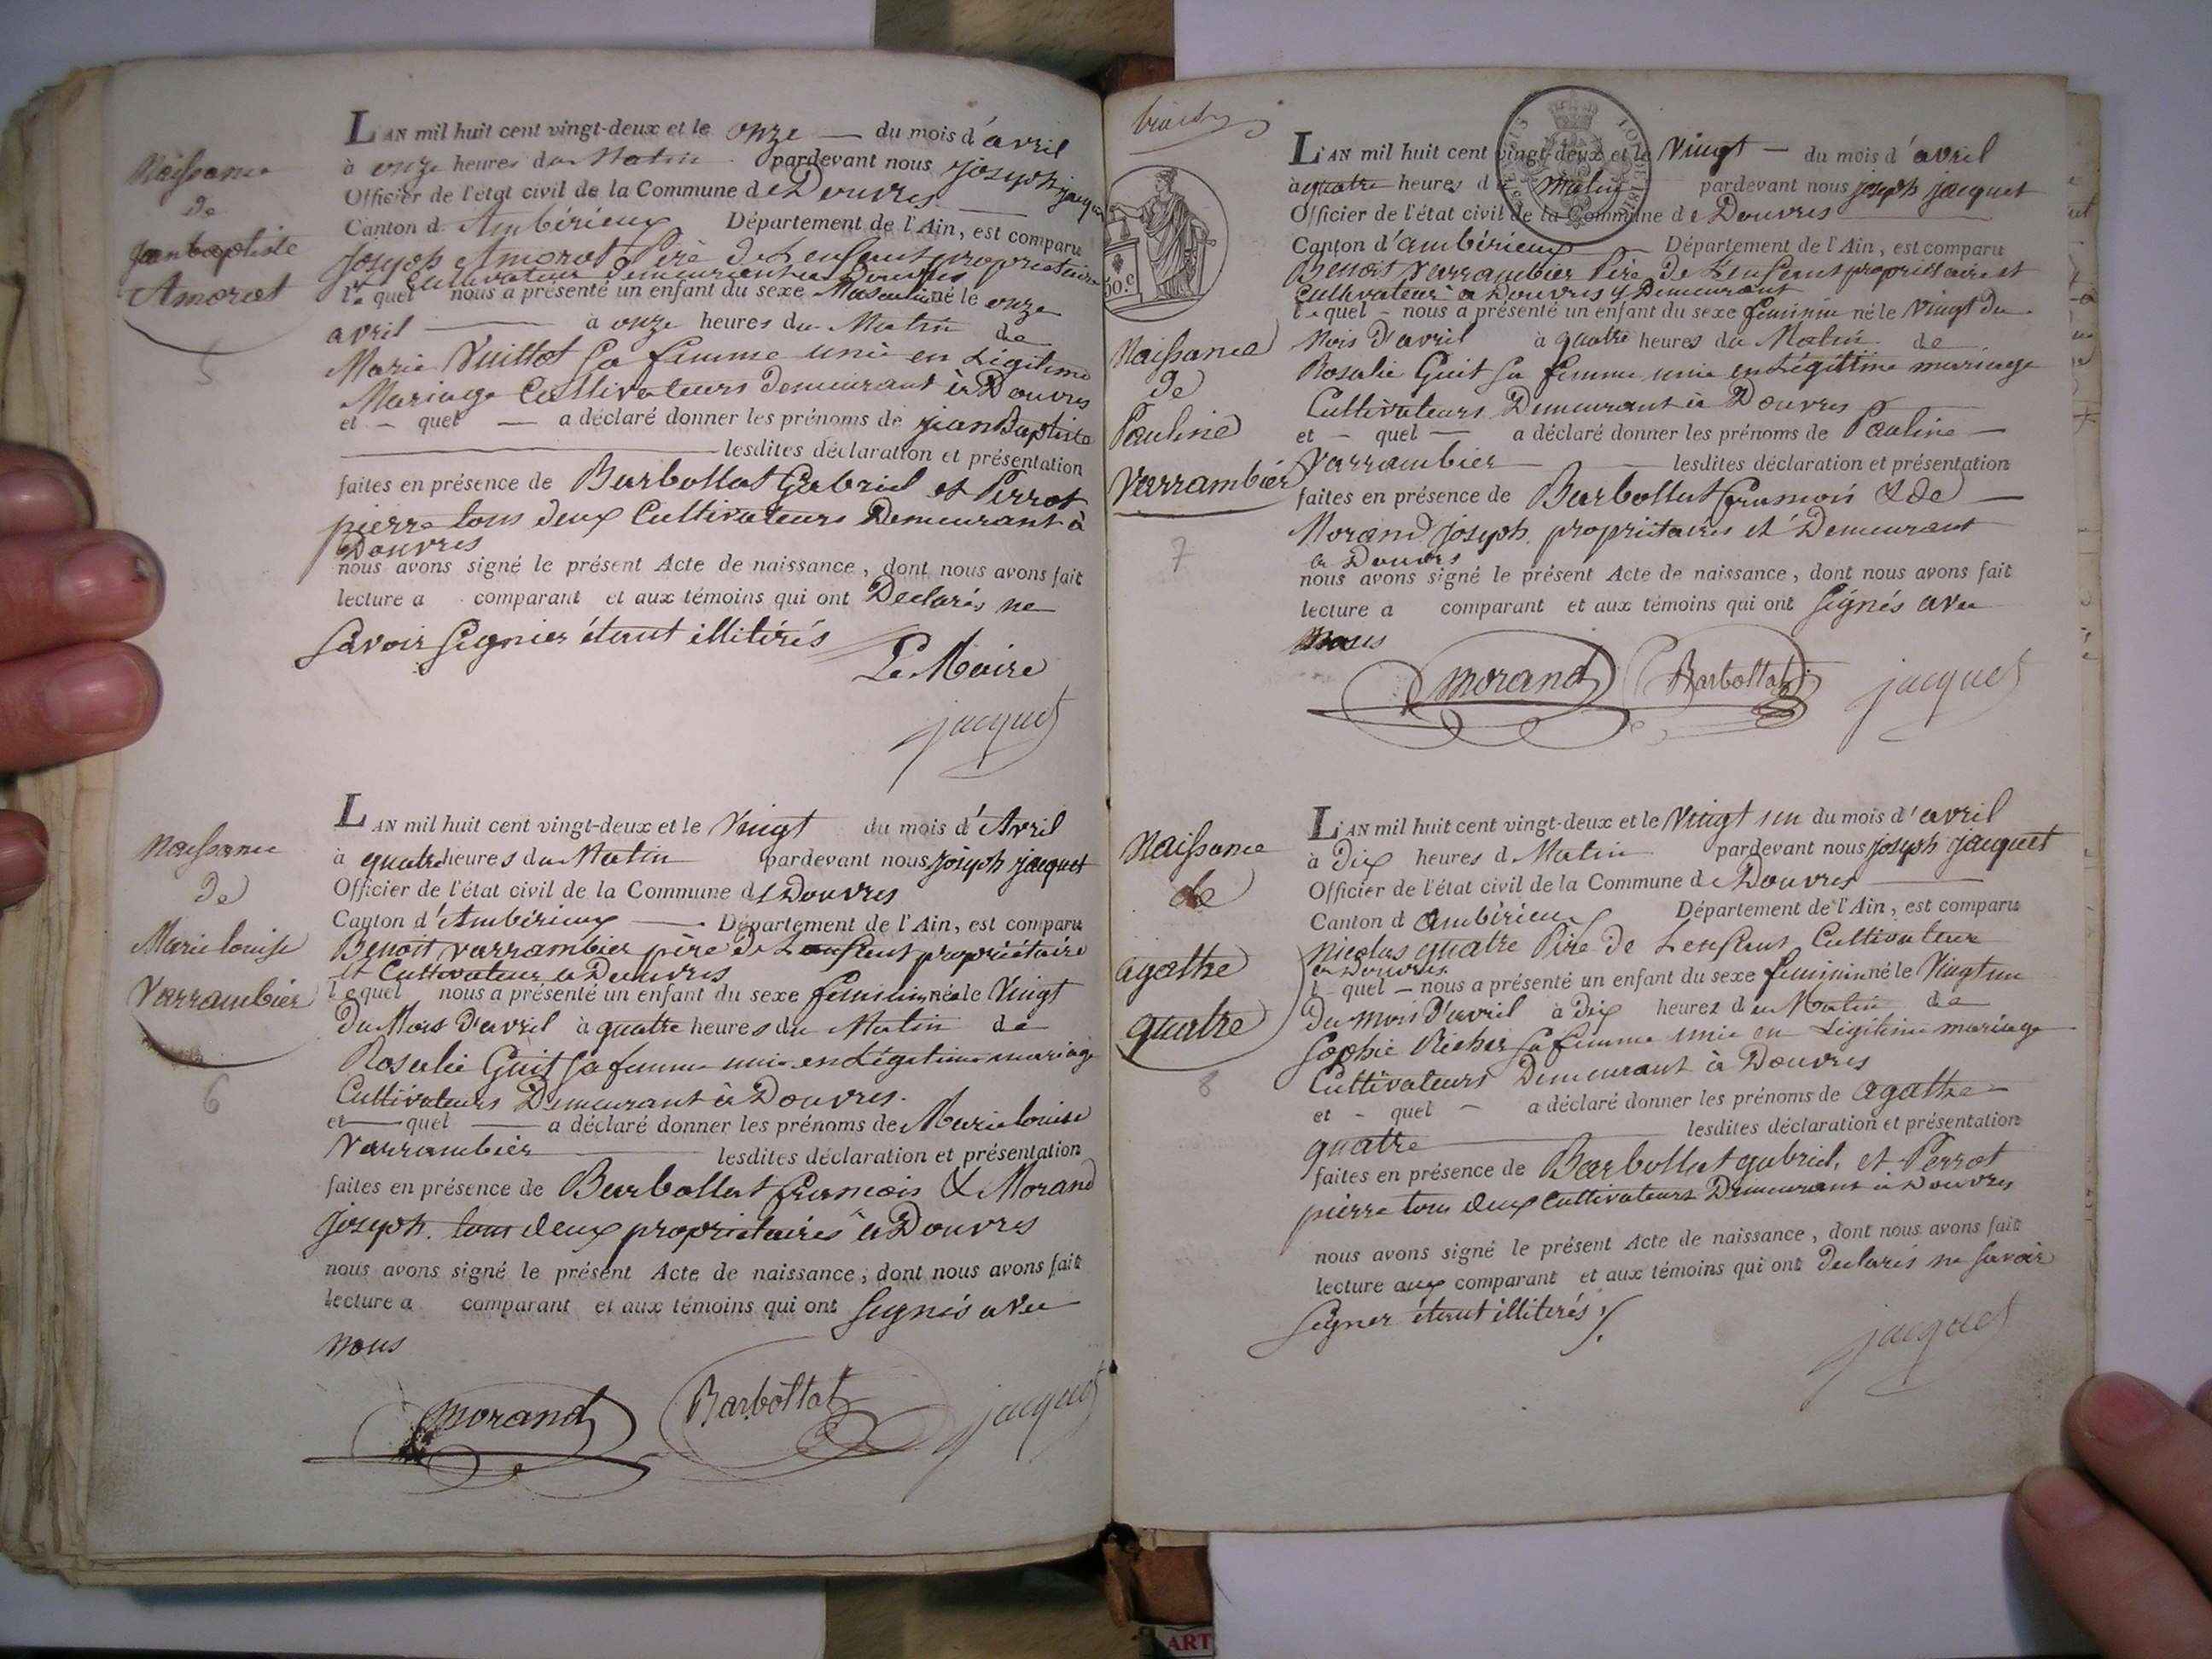 Naissance
de
jeanbaptiste
Amorat
5
L'AN mil huit cent vingt-deux et le onze — du mois d'avril
à onze heures du Matin pardevant nous joseph jacquet
Officier de l'état civil de la Commune de Douvres
Canton d'Ambérieux Département de l'Ain, est comparu
joseph Amorat Père de Lenfant propriétaire
et Cultivateur demeurant a Douvres
le quel nous a présenté un enfant du sexe Masculin né le onze
avril à onze heures du Matin de
Marie Vuillot sa femme unie en Légitime
Mariage Cultivateurs demeurant à Douvres
et - quel — a déclaré donner les prénoms de jean Baptiste
lesdites déclaration et présentation
faites en présence de Barbollat Gabriel et Perrot
pierre tous deux Cultivateurs Demeurant à
Douvres
nous avons signé le présent Acte de naissance, dont nous avons fait
lecture a comparant et aux témoins qui ont Declarés ne
savoir signier étant illitérés
Le Maire
jacquet
Naissance
de
Marie louise
Varrambier
6
L'AN mil huit cent vingt-deux et le Vingt du mois d'Avril
à quatre heures du Matin pardevant nous joseph jacquet
Officier de l'état civil de la Commune de Douvres
Canton d'Ambérieux — Département de l'Ain, est comparu
Benoit varrambier père de Lenfant propriétaire
et Cultivateur a Douvres
le quel nous a présenté un enfant du sexe feminin née le Vingt
du Mois d'avril à quatre heures du Matin de
Rosalie Guit sa femme unie en Légitime mariage
Cultivateurs Demeurant à Douvres.
et — quel — a déclaré donner les prénoms de Marie louise
Varrambier lesdites déclaration et présentation
faites en présence de Barbollat francois & Morand
joseph. tous deux propriétaires a Douvres
nous avons signé le présent Acte de naissance, dont nous avons fait
lecture a comparant et aux témoins qui ont signés avec
nous
morand Barbollat jacquet
50.c
Naissance
de
Pauline
Varrambier
7
L'AN mil huit cent vingt-deux et le Vingt — du mois d'avril
à quatre heures du Matin pardevant nous joseph jacquet
Officier de l'état civil de la Commune de Douvres
Canton d'ambérieux Département de l'Ain, est comparu
Benoit Varrambier Père de Lenfant propriétaire et
Cultivateur a Douvres y Demeurant
le quel - nous a présenté un enfant du sexe feminin né le Vingt du
Mois d'avril à quatre heures du Matin de
Rosalie Guit sa femme unie en Légittime mariage
Cultivateurs Demeurant à Douvres
et - quel — a déclaré donner les prénoms de Pauline —
Varrambier lesdites déclaration et présentation
faites en présence de Barbollat francois & de
Morand joseph. propriétaires et Demeurant
a Douvres
nous avons signé le présent Acte de naissance, dont nous avons fait
lecture a comparant et aux témoins qui ont signés avec
nous
morand Barbollat jacquet
Naissance
de
agathe
quatre
8
L'AN mil huit cent vingt-deux et le Vingt un du mois d'avril
à Dix heures d Matin pardevant nous joseph jacquet
Officier de l'état civil de la Commune de Douvres
Canton d ambérieux Département de l'Ain, est comparu
nicolas quatre Père de Lenfant Cultivateur
a Douvres
l- quel — nous a présenté un enfant du sexe feminin né le Vingt un
du mois d'avril à Dix heures du Matin de
sophie Richer sa femme unie en Légitime mariage
Cultivateurs Demeurant à Douvres
et - quel — a déclaré donner les prénoms de agathe
quatre lesdites déclaration et présentation
faites en présence de Barbollat gabriel, et Perrot
pierre tous deux Cultivateurs Demeurant a Douvres
nous avons signé le présent Acte de naissance, dont nous avons fait
lecture aux comparant et aux témoins qui ont declarés ne savoir
signer étant illitérés
jacquet
ART